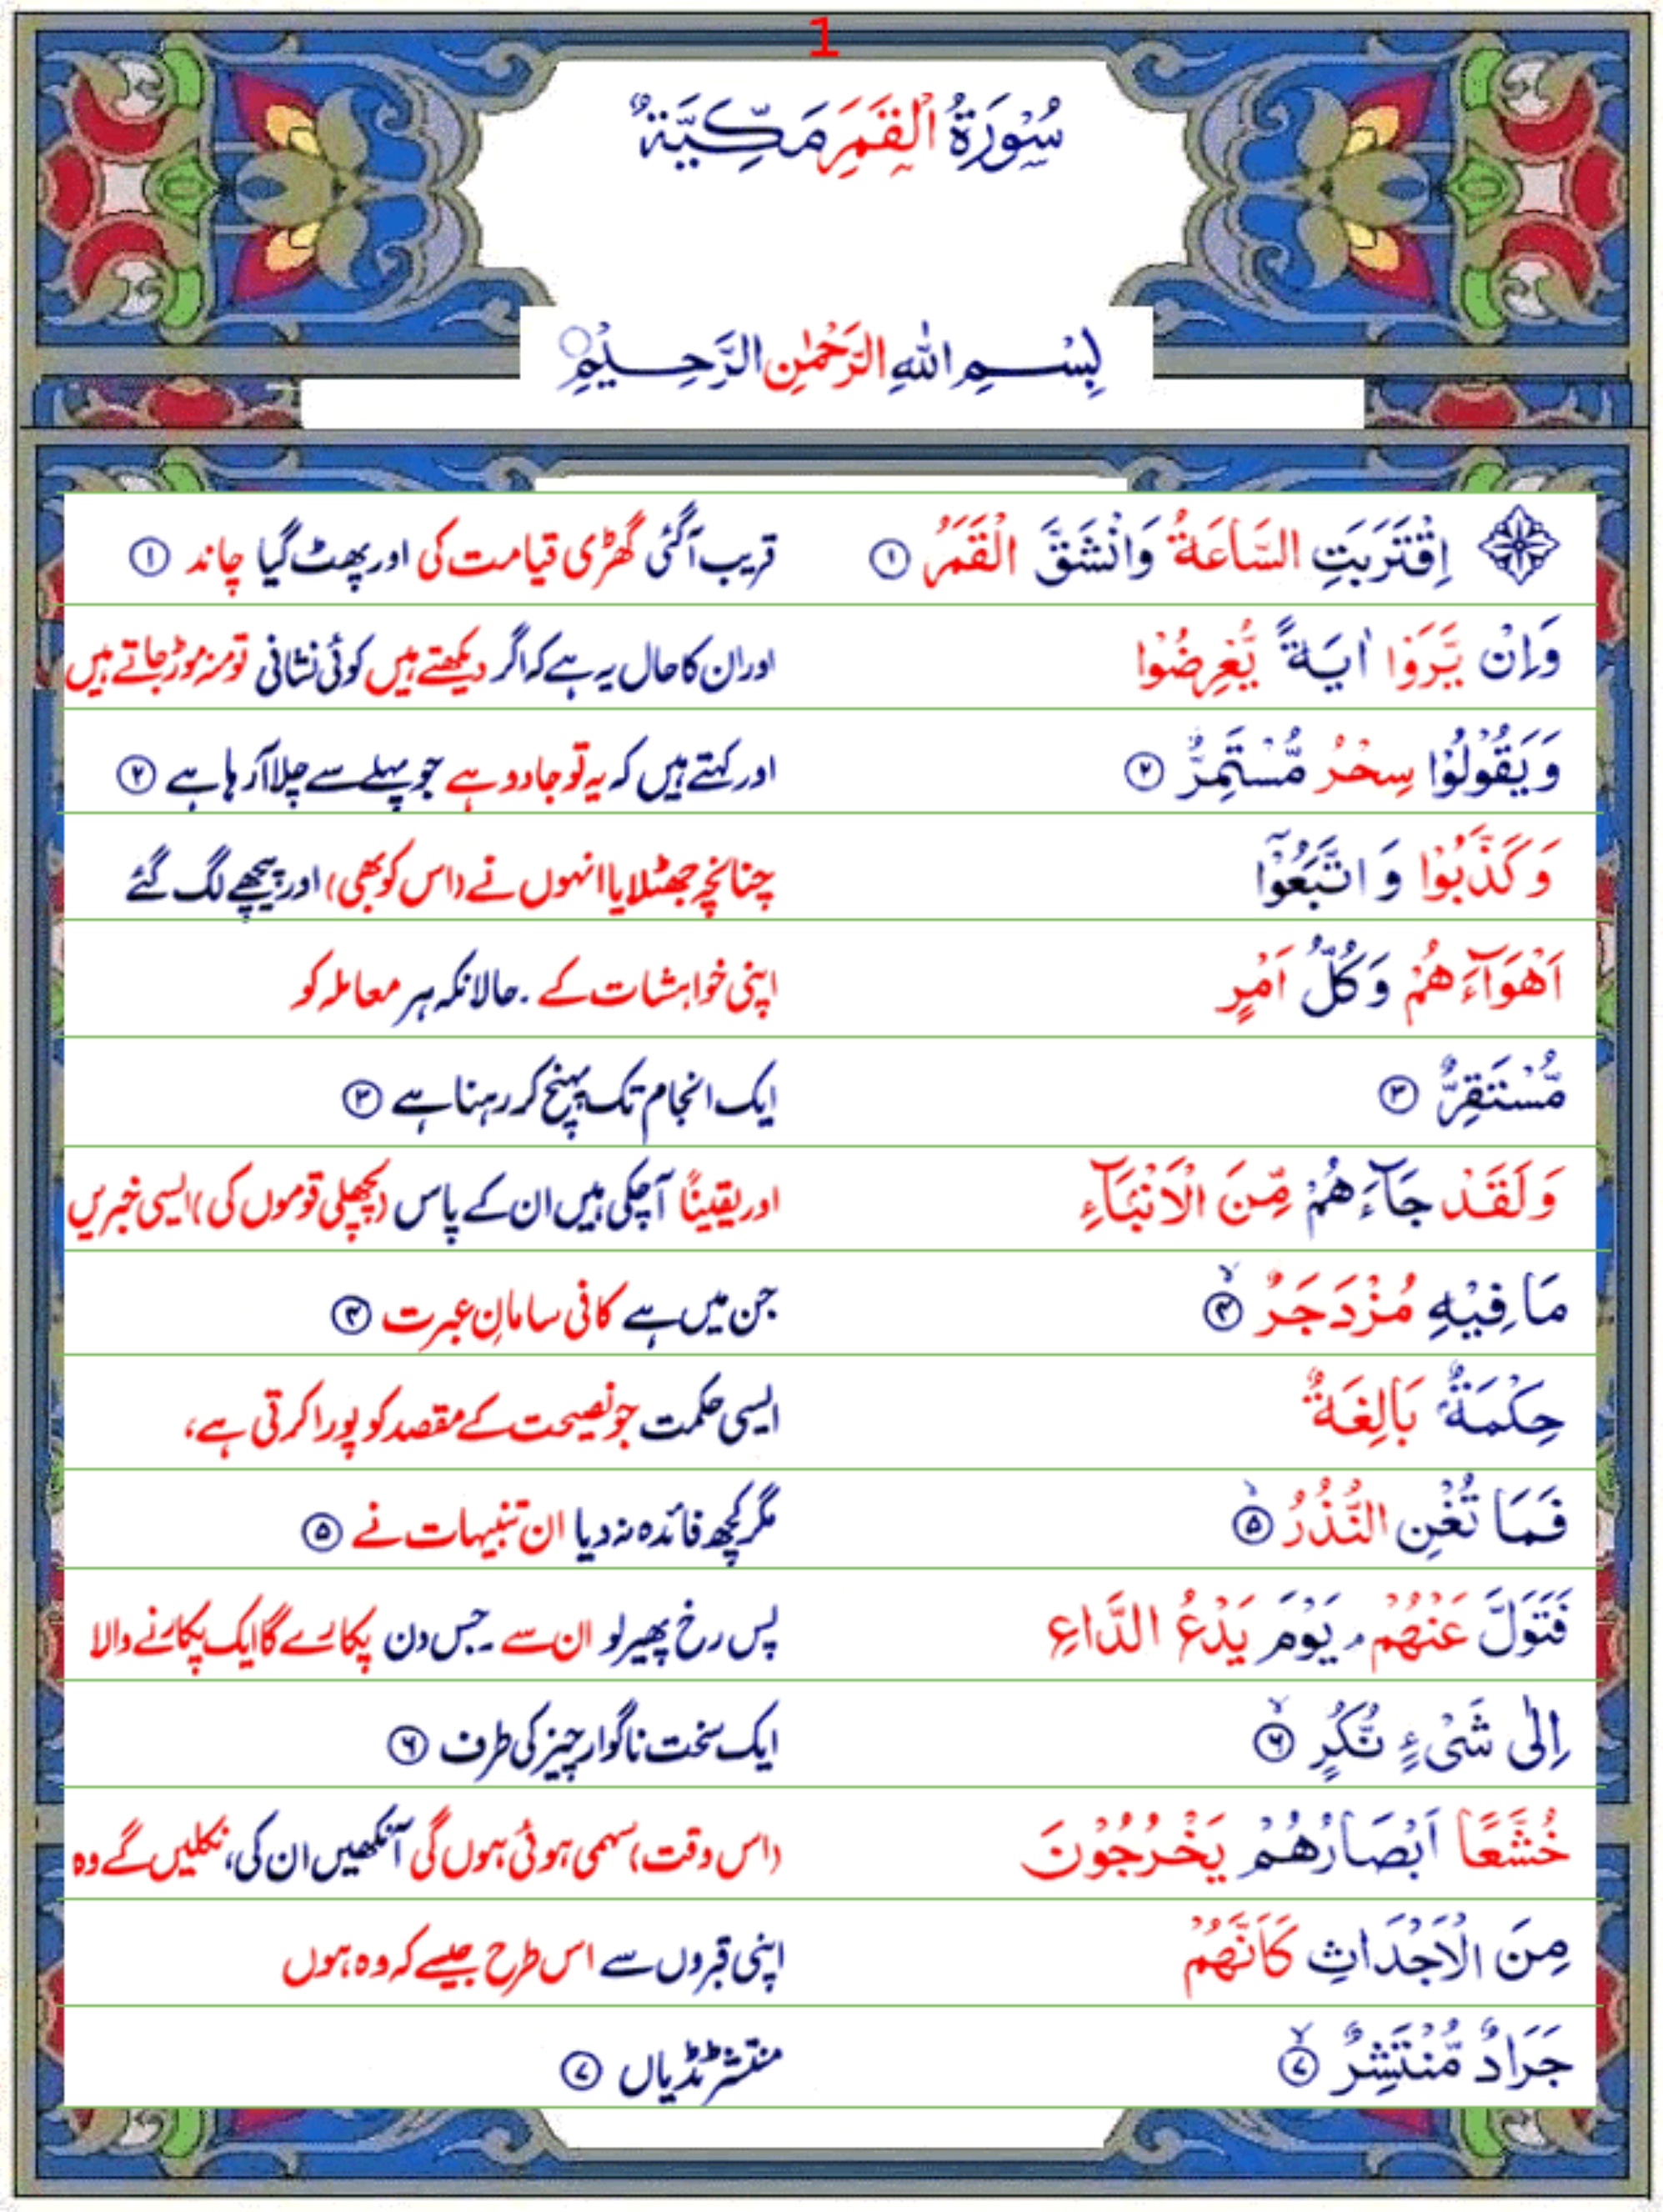 1
سُوْرَةُ الْقَمَرِ مَكِّيَّةٌ
بِسْمِ اللهِ الرَّحْمٰنِ الرَّحِيْمِ
اِقْتَرَبَتِ السَّاعَةُ وَانْشَقَّ الْقَمَرُ ۝۱ قریب آگئی گھڑی قیامت کی اور پھٹ گیا چاند ۝۱
وَاِنْ يَّرَوْا اٰيَةً يُّعْرِضُوْا اور ان کا حال یہ ہے کہ اگر دیکھتے ہیں کوئی نشانی تو منہ موڑ جاتے ہیں
وَيَقُوْلُوْا سِحْرٌ مُّسْتَمِرٌّ ۝۲ اور کہتے ہیں کہ یہ تو جادو ہے جو پہلے سے چلا آرہا ہے ۝۲
وَكَذَّبُوْا وَاتَّبَعُوْٓا چنانچہ جھٹلایا انہوں نے (اس کو بھی) اور پیچھے لگ گئے
اَهْوَآءَهُمْ وَكُلُّ اَمْرٍ اپنی خواہشات کے ۔ حالانکہ ہر معاملہ کو
مُّسْتَقِرٌّ ۝۳ ایک انجام تک پہنچ کر رہنا ہے ۝۳
وَلَقَدْ جَآءَهُمْ مِّنَ الْاَنْۢبَآءِ اور یقیناً آچکی ہیں ان کے پاس (پچھلی قوموں کی) ایسی خبریں
مَا فِيْهِ مُزْدَجَرٌ ۝۴ۙ جن میں ہے کافی سامانِ عبرت ۝۴
حِكْمَةٌۢ بَالِغَةٌ ایسی حکمت جو نصیحت کے مقصد کو پورا کرتی ہے،
فَمَا تُغْنِ النُّذُرُ ۝۵ۙ مگر کچھ فائدہ نہ دیا ان تنبیہات نے ۝۵
فَتَوَلَّ عَنْهُمْ ۘ يَوْمَ يَدْعُ الدَّاعِ پس رخ پھیر لو ان سے ۔ جس دن پکارے گا ایک پکارنے والا
اِلٰى شَىْءٍ نُّكُرٍ ۝۶ۙ ایک سخت ناگوار چیز کی طرف ۝۶
خُشَّعًا اَبْصَارُهُمْ يَخْرُجُوْنَ (اس وقت) سہمی ہوئی ہوں گی آنکھیں ان کی، نکلیں گے وہ
مِنَ الْاَجْدَاثِ كَاَنَّهُمْ اپنی قبروں سے اس طرح جیسے کہ وہ ہوں
جَرَادٌ مُّنْتَشِرٌ ۝۷ۙ منتشر ٹڈیاں ۝۷